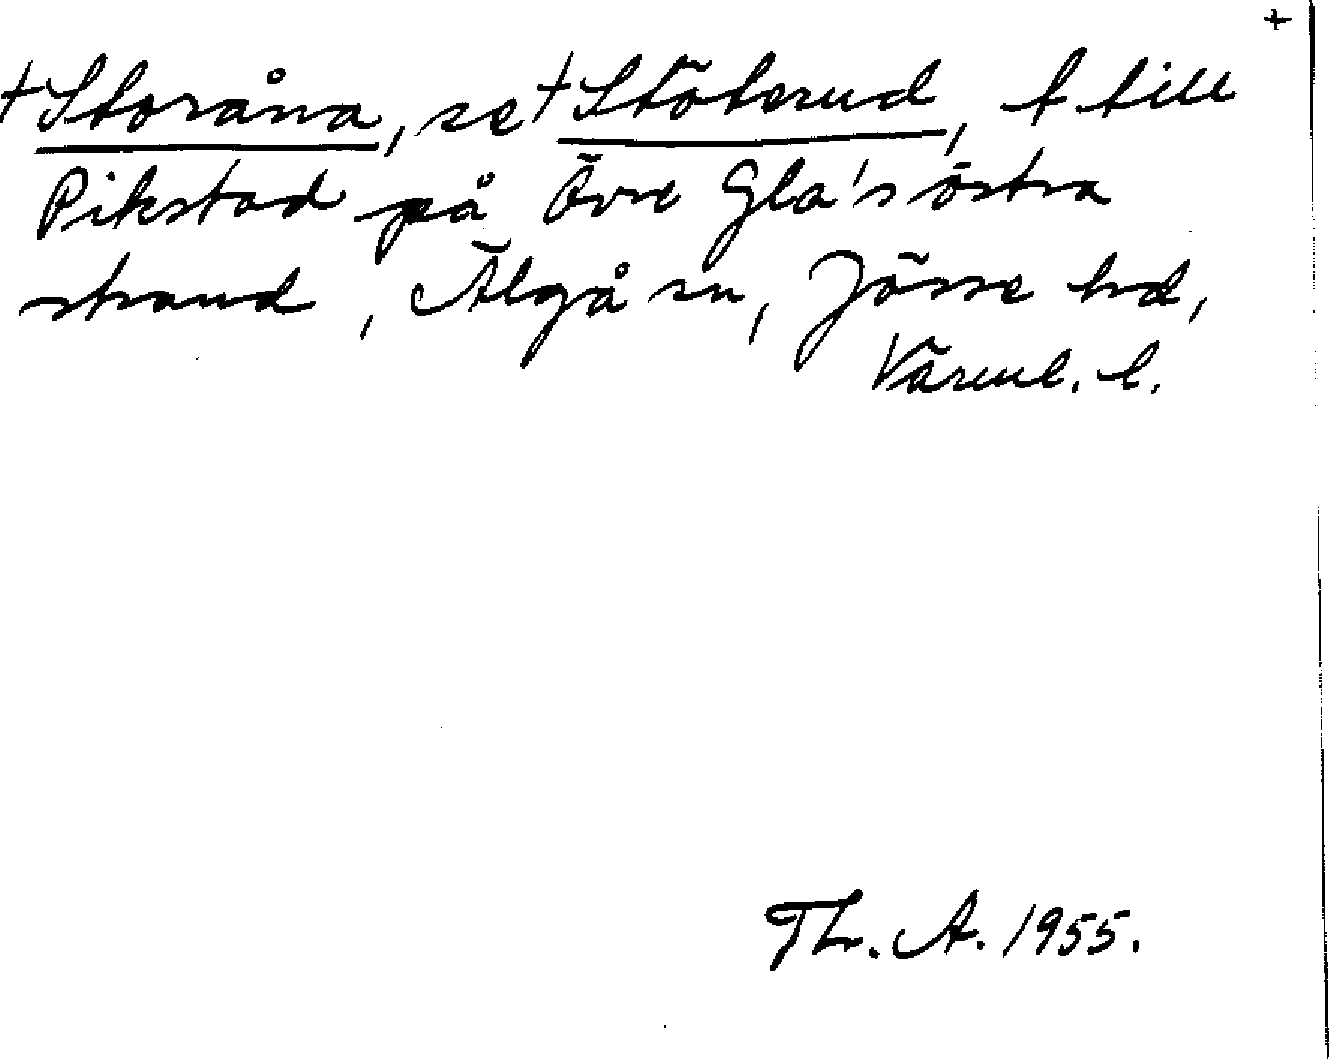 +
†Storåna, se †Stöterud, t till
Pikstad på Övre Gla's östra
strand, Älgå sn, Jösse hd,
Värml. l.
Th. A. 1955.